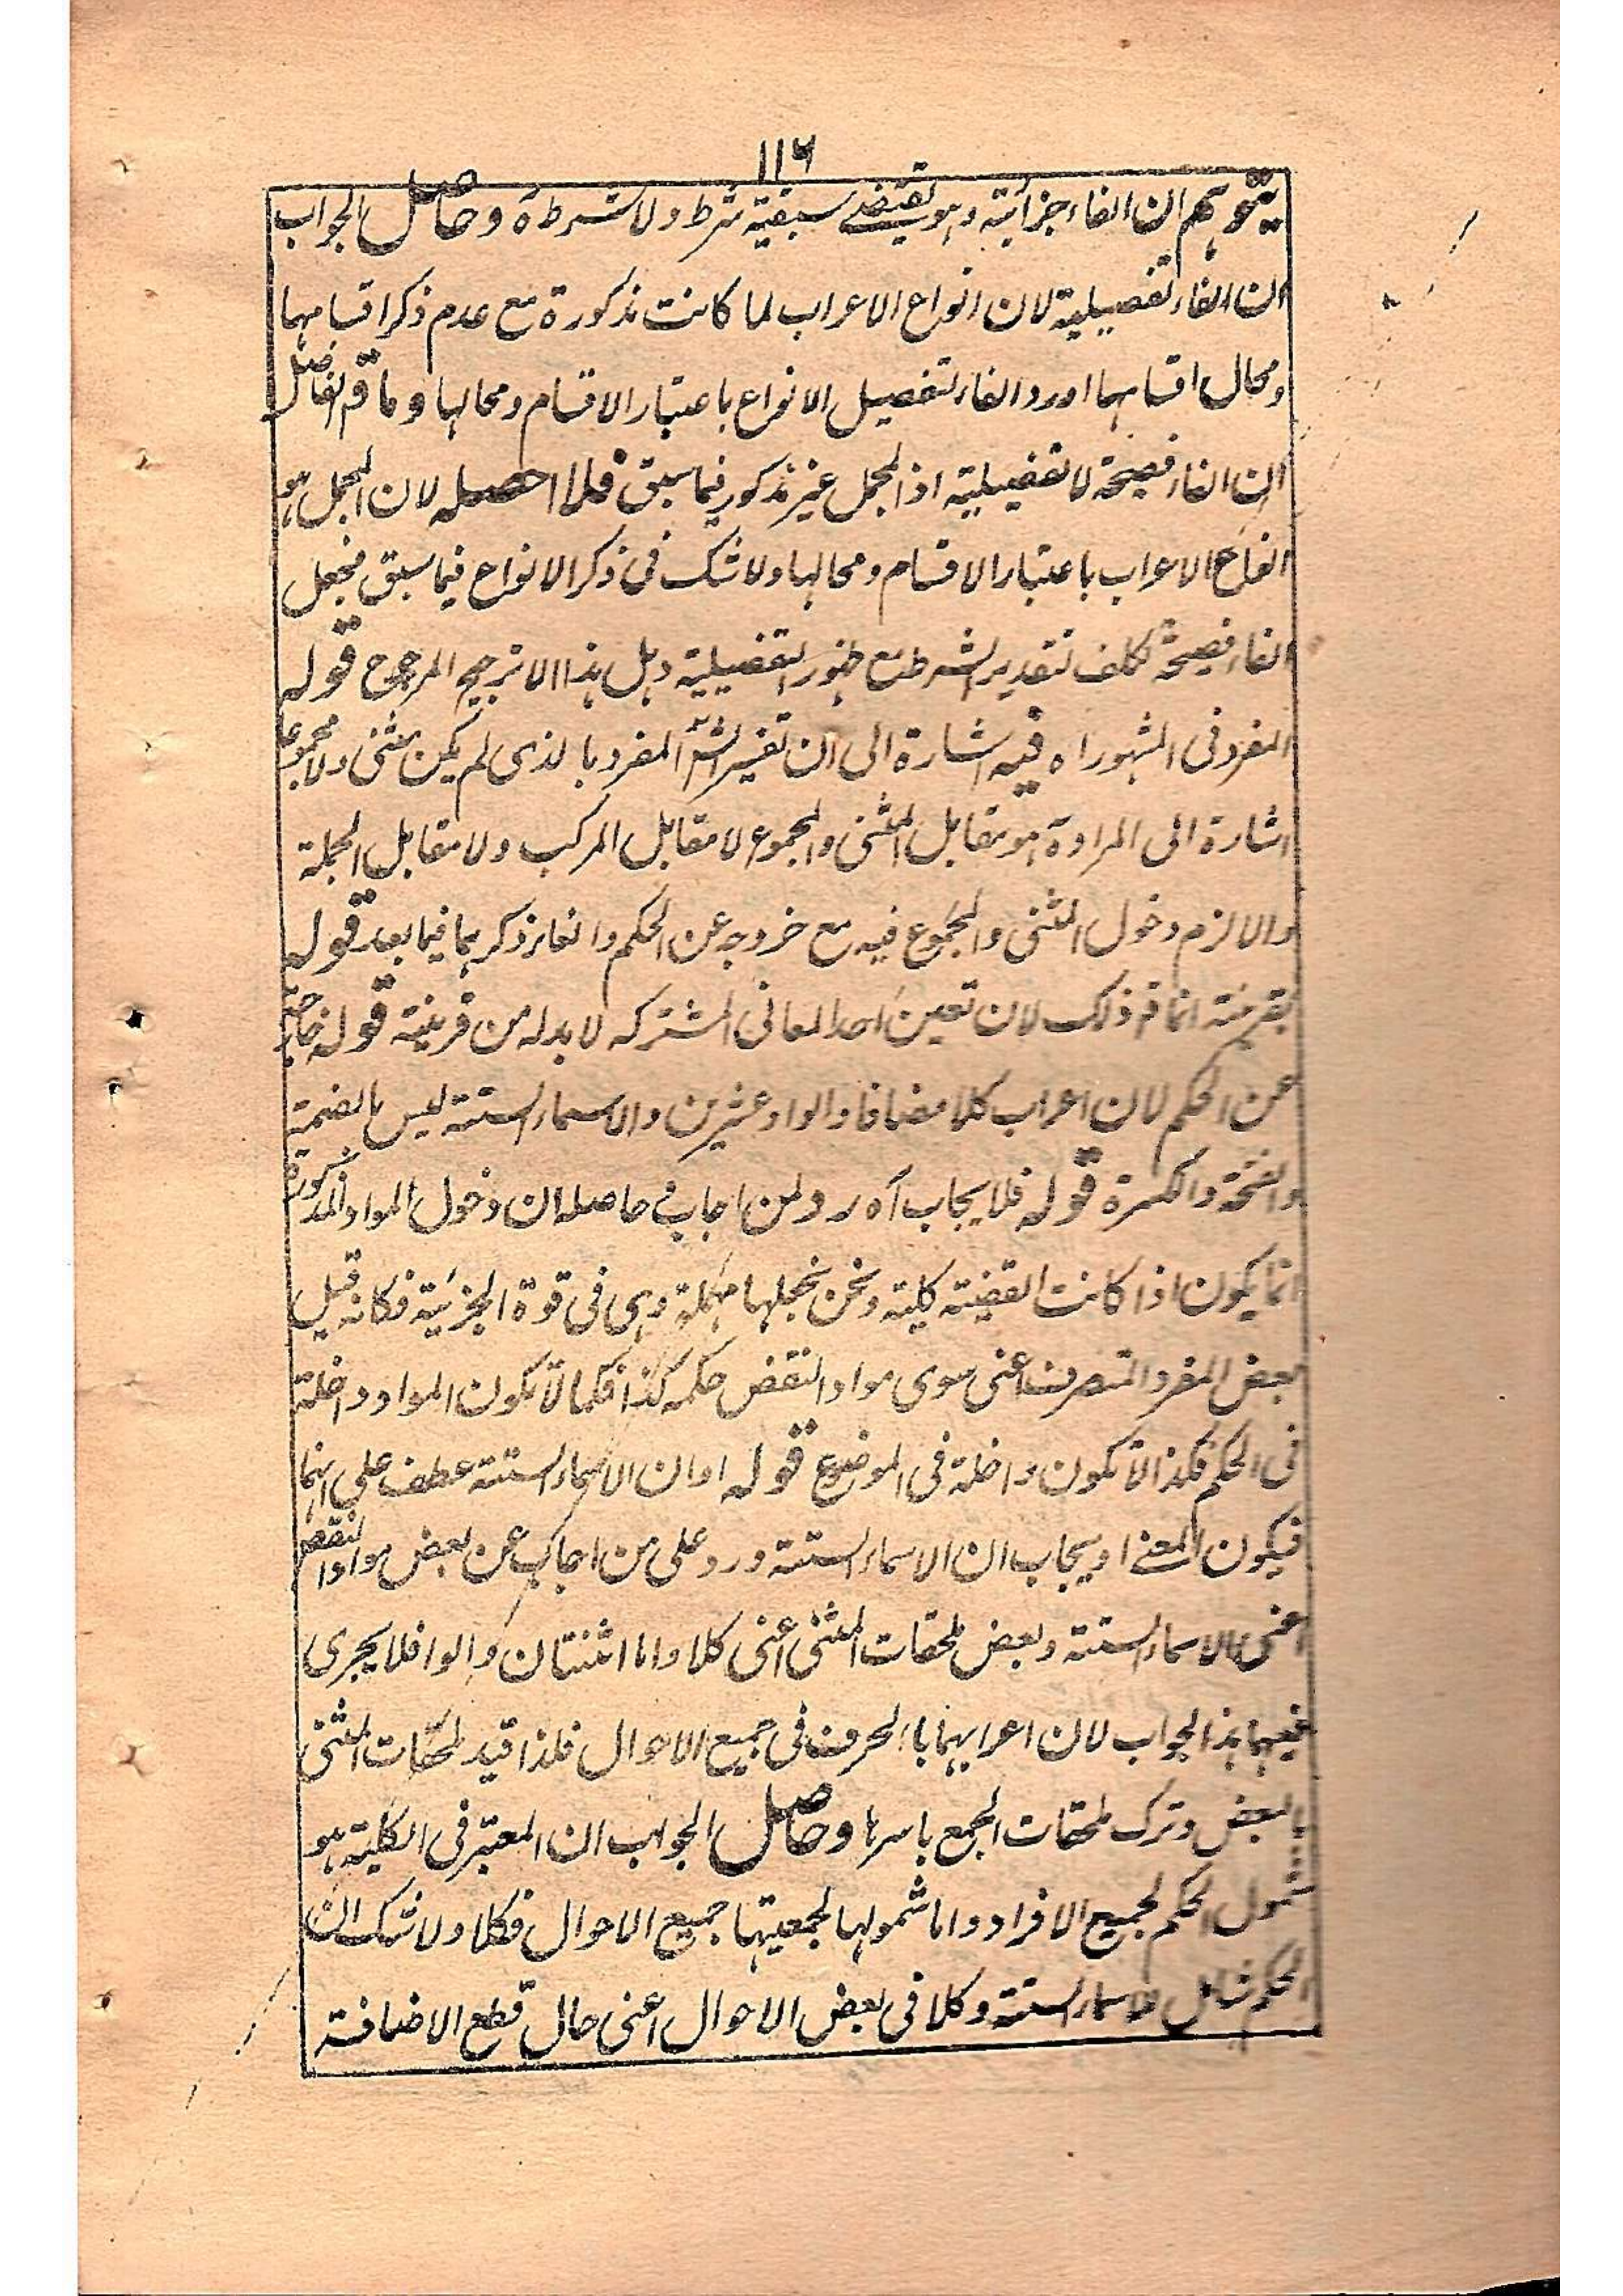 ١١٦
يتوهم ان الفاء جزائية وهو يقتضے سبقية شرط ولا شرط ه وحاصل الجواب
ان الفاء تفصيلية لان انواع الاعراب لما كانت مذكورة مع عدم ذكر اقسامها
ومحال اقسامها اورد الفاء لتفصيل الانواع باعتبار الاقسام ومحالها وما قم الفاضل
ان الفاء فصيحة لا تفصيلية اذ المجمل غير مذكور فيما سبق فلا احصله لان المجمل هو
انواع الاعراب باعتبار الاقسام ومحالها ولا شك فى ذكر الانواع فيما سبق فجعل
الفاء فصيحة تكلف بتقدير الشرط مع ظهور التفصيلية وهل هذا الا ترجيح المرجوح قوله
المفرد فى المشهور اه فيه اشارة الى ان تفسير الش المفرد بالذى لم يكن مثنى ولا مجموعا
اشارة الى المراد ة هو مقابل المثنى والمجموع لا مقابل المركب ولا مقابل الجملة
والا لزم دخول المثنى والمجموع فيه مع خروجه عن الحكم والغاء ذكرهما فيما بعد قوله
بقرينة انما قم ذلك لان تعين احد المعانى المشتركه لا بد له من قرينة قوله خارجة
عن الحكم لان اعراب كلا مضافا والوا وعشرين والاسماء الستة ليس بالضمة
والفتحة والكسرة قوله فلا يجاب آه رد لمن اجاب في حاصله ان دخول المواد المذكورة
انما يكون اذا كانت القضية كلية ونحن نجعلها مهملة وهى فى قوة الجزئية فكانه قيل
بعض المفرد المنصرف اعنى سوى مواد النقض حكمه كذا فكما لا تكون المواد داخلة
فى الحكم فكذا لا تكون داخلة فى الموضوع قوله او ان الاسماء الستة عطف على انهما
فيكون المعنے او يجاب ان الاسماء الستة ورد على من اجاب عن بعض مواد النقض
اعنى الاسماء الستة وبعض ملحقات المثنى اعنى كلا واما اثنتان والوا فلا يجرى
فيهما هذا الجواب لان اعرابهما بالحرف فى جميع الاحوال فلذا قيد ملحقات المثنى
بالبعض وترك ملحقات الجمع باسرها وحاصل الجواب ان المعتبر فى الكلية هو
شمول الحكم لجميع الافراد واما شمولها لجمعيتها جميع الاحوال فكلا ولا شك ان
الحكم شامل للاسماء الستة وكلا فى بعض الاحوال اعنى حال قطع الاضافة